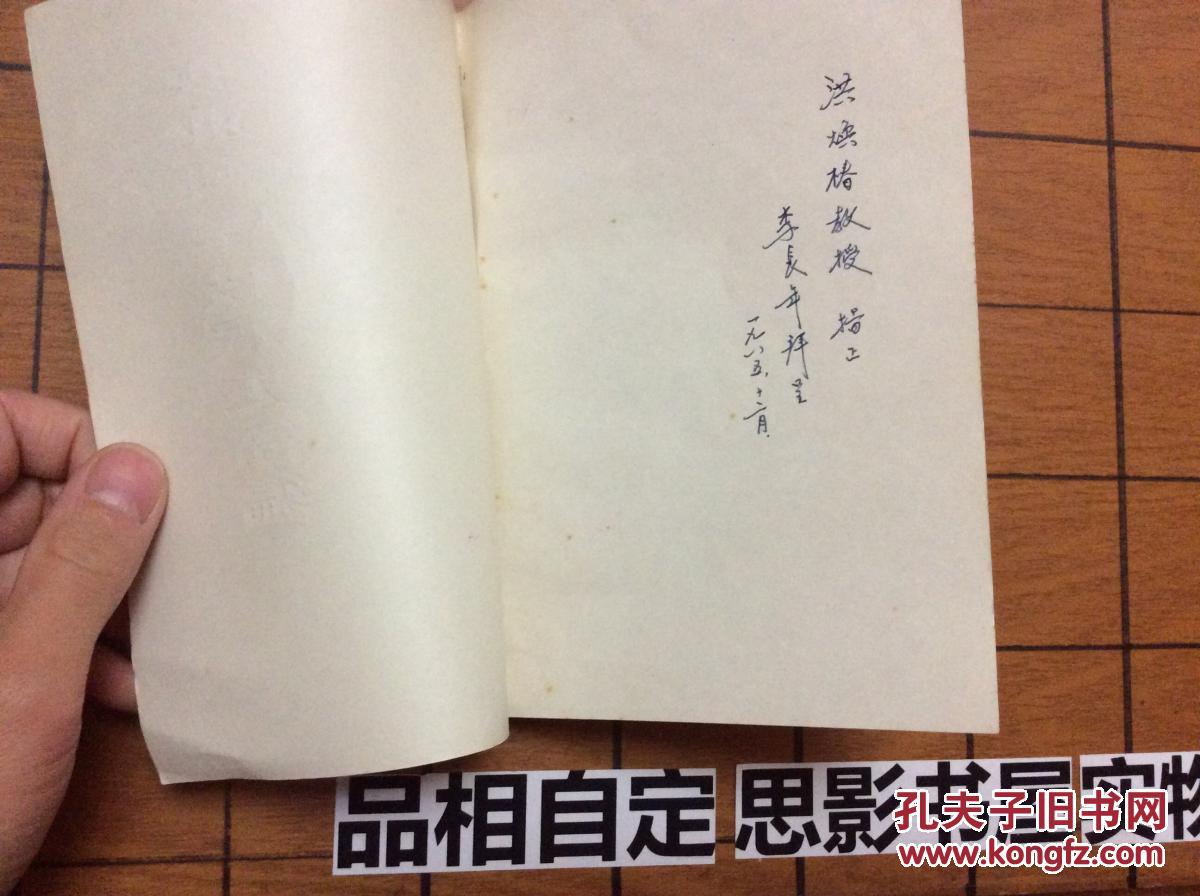 洪焕椿教授 指正
李长年拜呈
一九八五.十二月.
品相自定 思影书屋实物
孔夫子旧书网
www.kongfz.com